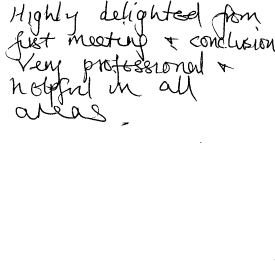 Highly delighted from
first meeting & conclusion
Very professional &
helpful in all
areas.